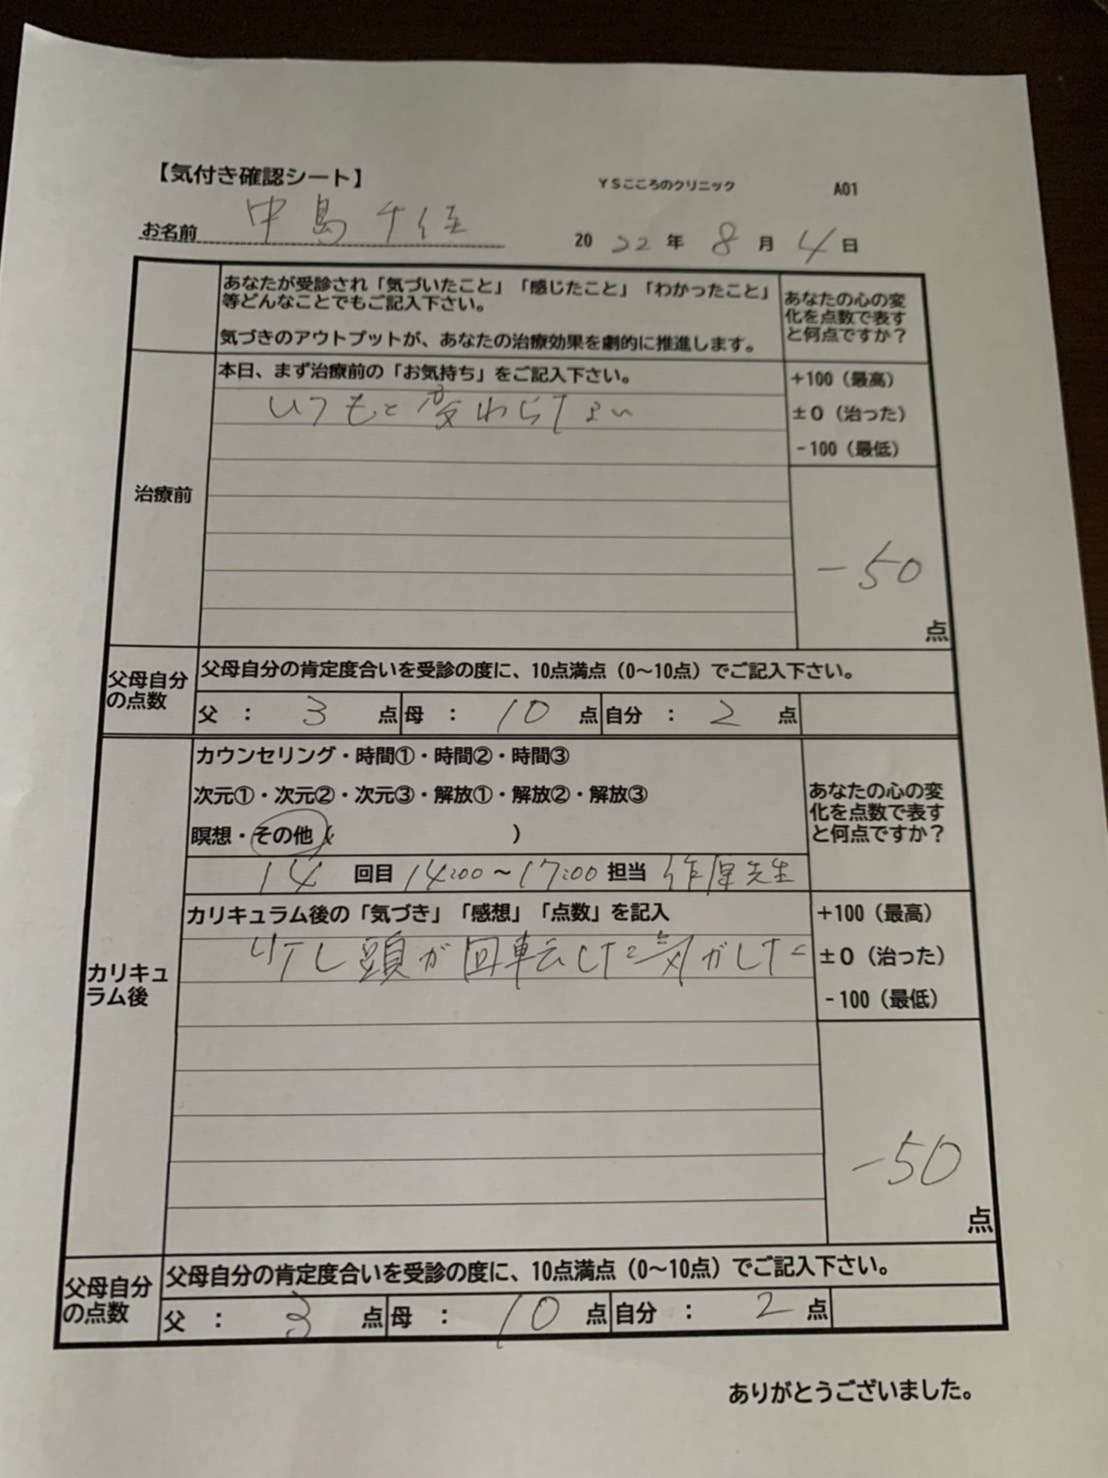 【気付き確認シート】
YSこころのクリニック A01
お名前 中島千佳 2022年8月4日
あなたが受診され「気づいたこと」「感じたこと」「わかったこと」
等どんなことでもご記入下さい。
気づきのアウトプットが、あなたの治療効果を劇的に推進します。
あなたの心の変
化を点数で表す
と何点ですか？
治療前
本日、まず治療前の「お気持ち」をご記入下さい。
いつもと変わらない
+100（最高）
±0（治った）
-100（最低）
-50
点
父母自分
の点数
父母自分の肯定度合いを受診の度に、10点満点（0〜10点）でご記入下さい。
父 ： 3 点 母 ： 10 点 自分 ： 2 点
カウンセリング・時間①・時間②・時間③
次元①・次元②・次元③・解放①・解放②・解放③
瞑想・その他（ ）
14 回目 14:00〜17:00 担当 先生
あなたの心の変
化を点数で表す
と何点ですか？
カリキュ
ラム後
カリキュラム後の「気づき」「感想」「点数」を記入
少し頭が回転した気がした
+100（最高）
±0（治った）
-100（最低）
-50
点
父母自分
の点数
父母自分の肯定度合いを受診の度に、10点満点（0〜10点）でご記入下さい。
父 ： 3 点 母 ： 10 点 自分 ： 2 点
ありがとうございました。